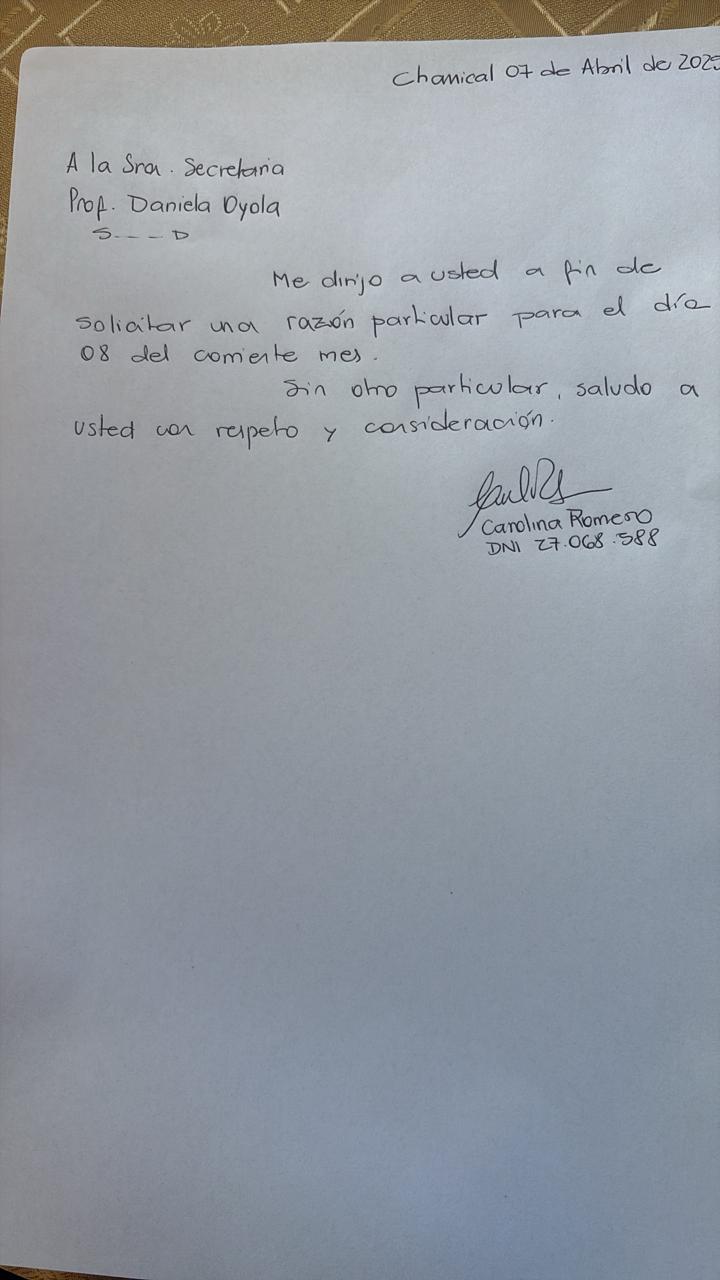 Chamical 07 de Abril de 2025
A la Sra. Secretaria
Prof. Daniela Oyola
S----D
Me dirijo a usted a fin de
solicitar una razón particular para el día
08 del corriente mes.
Sin otro particular, saludo a
usted con respeto y consideración.
Carolina Romero
DNI 27.068.588